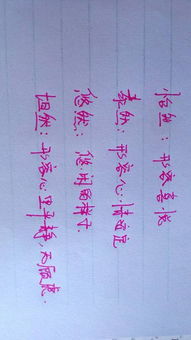 怡然：形容喜悦
泰然：形容心情安定
悠然：悠闲的样子
坦然：形容心里平静，无顾虑.